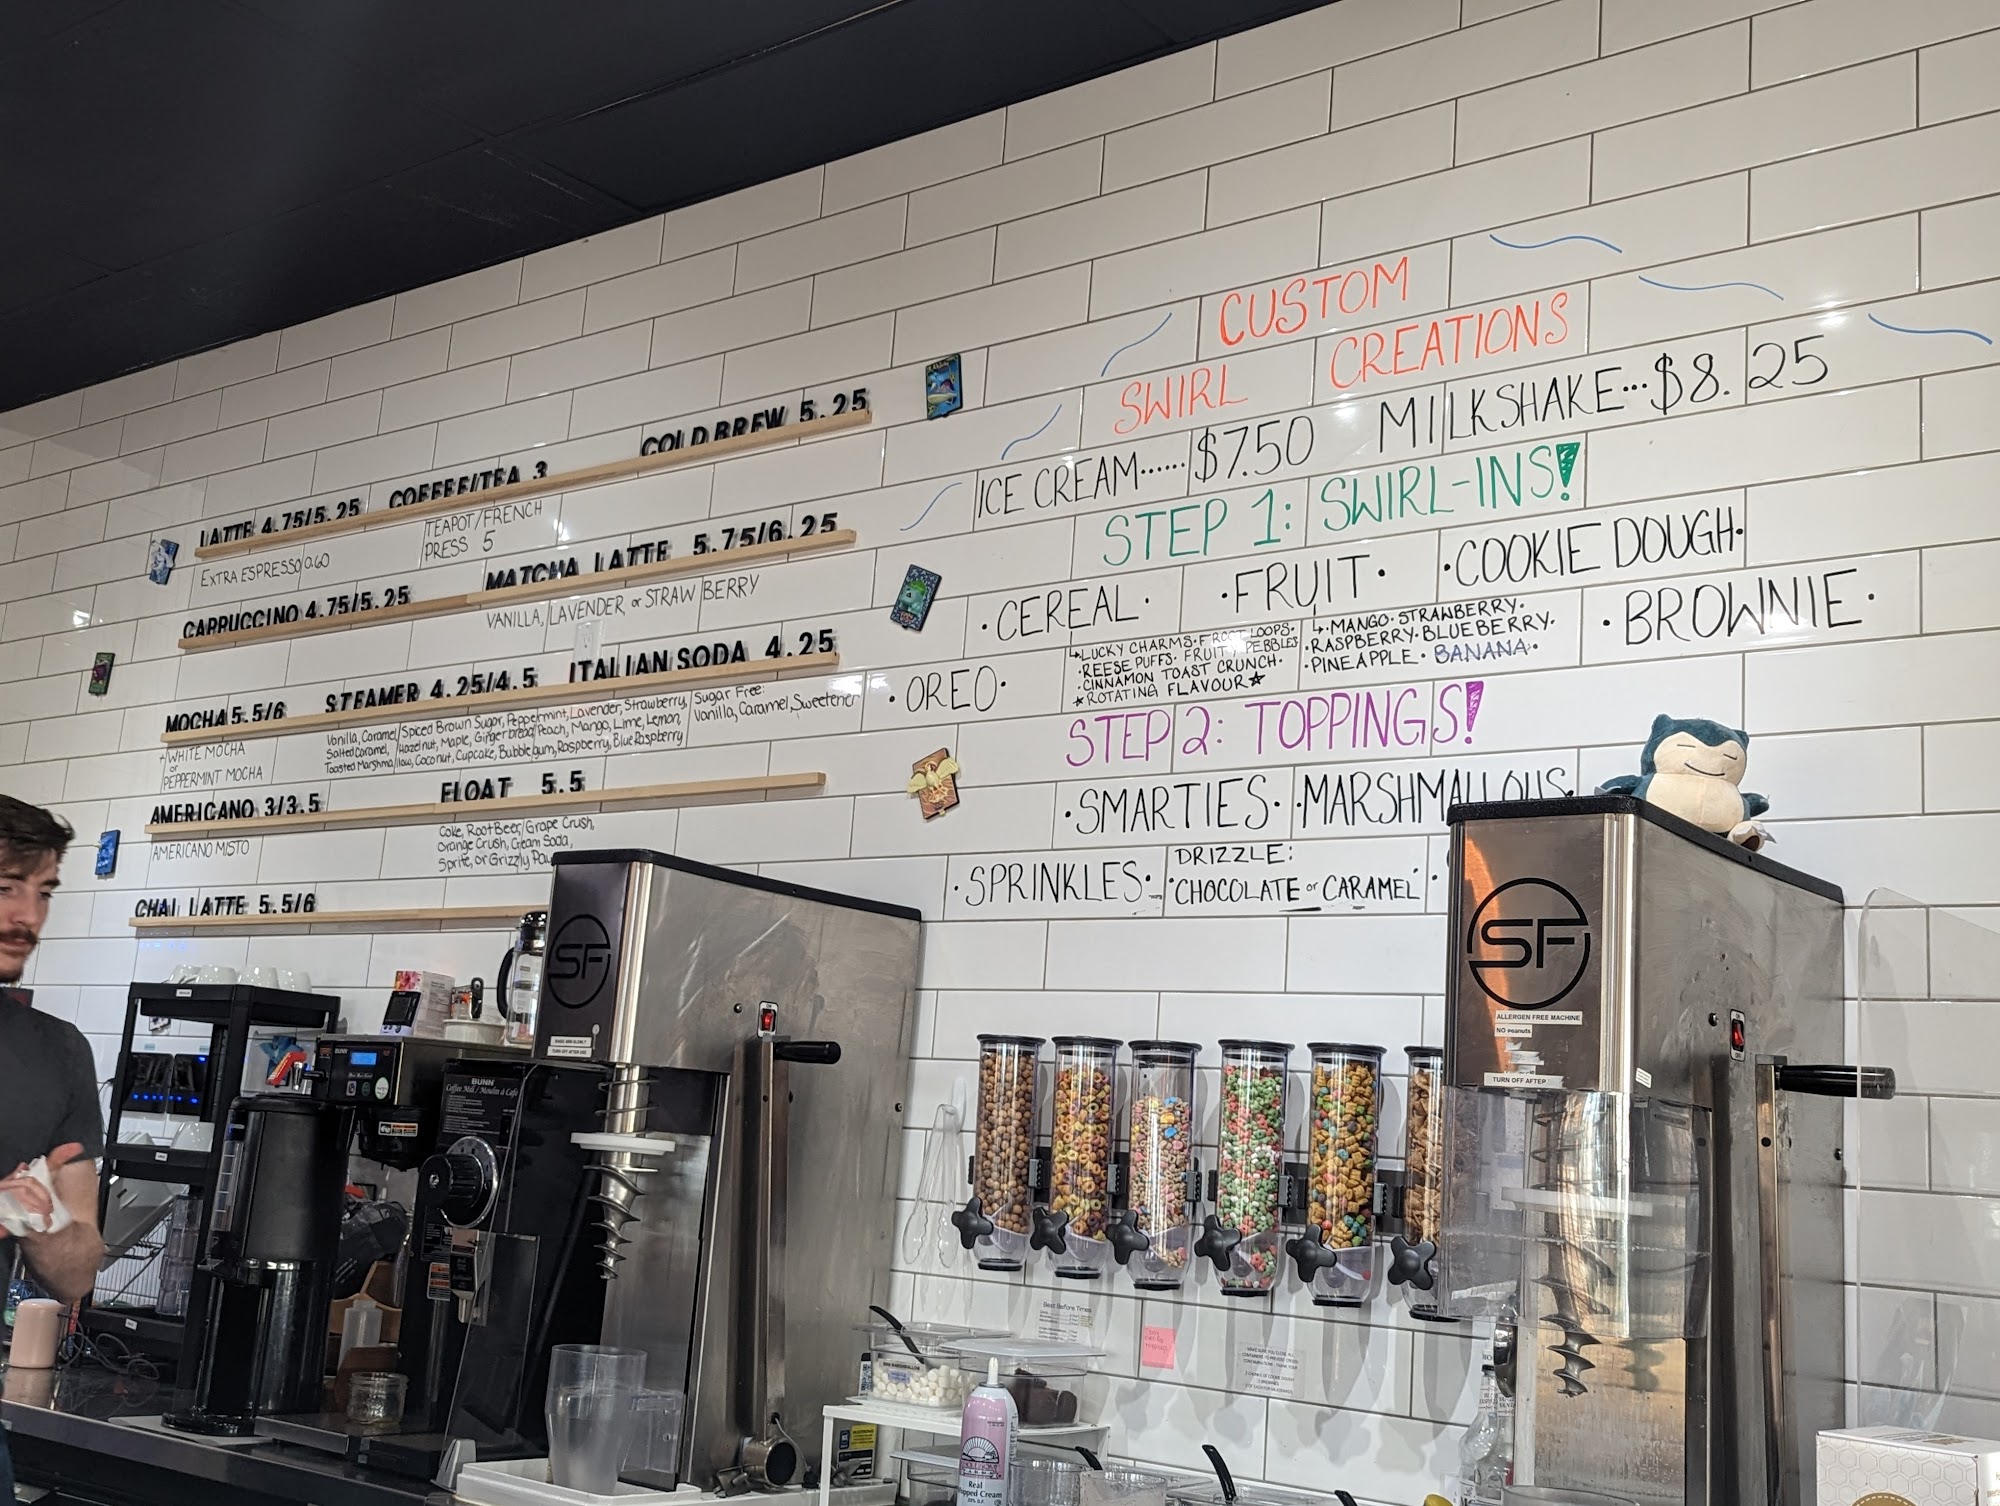 LATTE 4.75/5.25
EXTRA ESPRESSO 0.60
COFFEE/TEA 3
TEAPOT/FRENCH
PRESS 5
COLD BREW 5.25
CAPPUCCINO 4.75/5.25
MATCHA LATTE 5.75/6.25
VANILLA, LAVENDER or STRAWBERRY
MOCHA 5.5/6
WHITE MOCHA
or
PEPPERMINT MOCHA
STEAMER 4.25/4.5
ITALIAN SODA 4.25
Vanilla, Caramel, Spiced Brown Sugar, Peppermint, Lavender, Strawberry,
Salted Caramel, Hazelnut, Maple, Gingerbread, Peach, Mango, Lime, Lemon,
Toasted Marshmallow, Coconut, Cupcake, Bubblegum, Raspberry, Blue Raspberry
Sugar Free:
Vanilla, Caramel, Sweetener
AMERICANO 3/3.5
AMERICANO MISTO
FLOAT 5.5
Coke, Root Beer, Grape Crush,
Orange Crush, Cream Soda,
Sprite, or Grizzly Paw
CHAI LATTE 5.5/6
CUSTOM
SWIRL CREATIONS
ICE CREAM......$7.50 MILKSHAKE...$8.25
STEP 1: SWIRL-INS!
·CEREAL· ·FRUIT· ·COOKIE DOUGH·
LUCKY CHARMS·FROOT LOOPS·
·REESE PUFFS·FRUITY PEBBLES
·CINNAMON TOAST CRUNCH·
★ROTATING FLAVOUR★
·MANGO·STRAWBERRY·
·RASPBERRY·BLUEBERRY·
·PINEAPPLE·BANANA·
·BROWNIE·
·OREO·
STEP 2: TOPPINGS!
·SMARTIES· ·MARSHMALLOWS·
·SPRINKLES·
DRIZZLE:
·CHOCOLATE or CARAMEL·
SF
TURN OFF AFTER USE
SF
ALLERGEN FREE MACHINE
NO peanuts
TURN OFF AFTER
BUNN
BUNN
Coffee Mill / Moulin à Café
Best Before Times
MINI MARSHMALLOW
Real
Whipped Cream